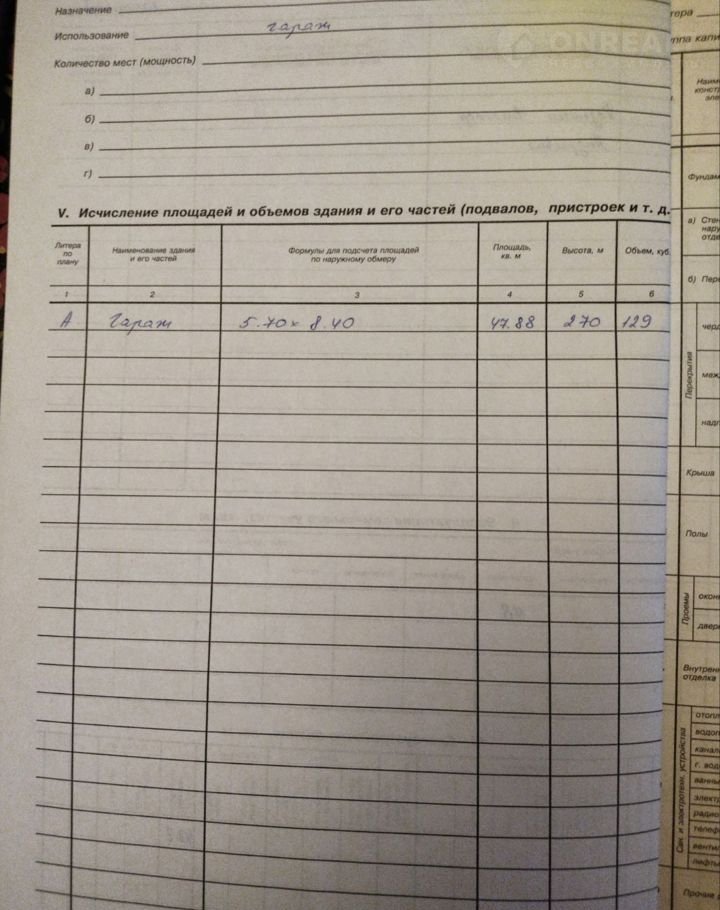 Назначение
Использование гараж
Количество мест (мощность)
а)
б)
в)
г)
V. Исчисление площадей и объемов здания и его частей (подвалов, пристроек и т. д.
Литера по плану
Наименование здания и его частей
Формулы для подсчета площадей по наружному обмеру
Площадь, кв. м
Высота, м
Объем, куб.
1 2 3 4 5 6
А Гараж 5.70 х 8.40 47.88 270 129
тера
ппа капи
Наим
конст
эле
Фундам
а) Стен
нару
отде
б) Пере
Перекрытия
черд
меж
надп
Крыша
Полы
Проемы
оконн
двер
Внутренн
отделка
Сан. и электротехн. устройства
отопл
водоп
канал
г. вод
ванны
электр
радио
телеф
венти
лифты
Прочие